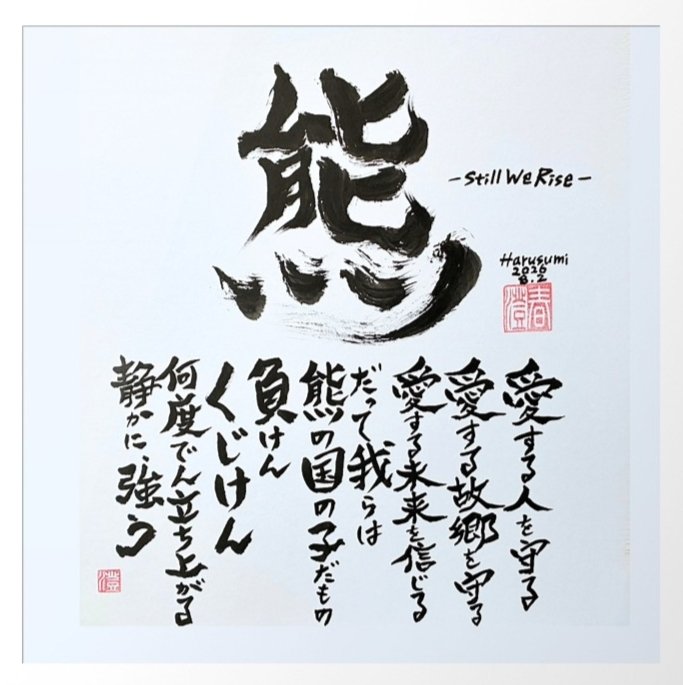 熊
-Still We Rise-
Harusumi
2026
8.2
春澄
愛する人を守る
愛する故郷を守る
愛する未来を信じる
だって我らは
熊の国の子だもの
負けん
くじけん
何度でん立ち上がる
静かに、強う
澄